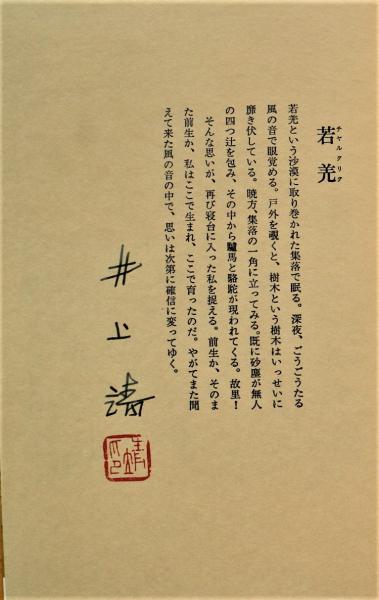 若羌
チャルクリク
若羌という沙漠に取り巻かれた集落で眠る。深夜、ごうごうたる
風の音で眼覚める。戸外を覗くと、樹木という樹木はいっせいに
靡き伏している。暁方、集落の一角に立ってみる。既に砂塵が無人
の四つ辻を包み、その中から驢馬と駱駝が現われてくる。故里！
そんな思いが、再び寝台に入った私を捉える。前生か、そのま
た前生か、私はここで生まれ、ここで育ったのだ。やがてまた聞
えて来た風の音の中で、思いは次第に確信に変ってゆく。
井上靖